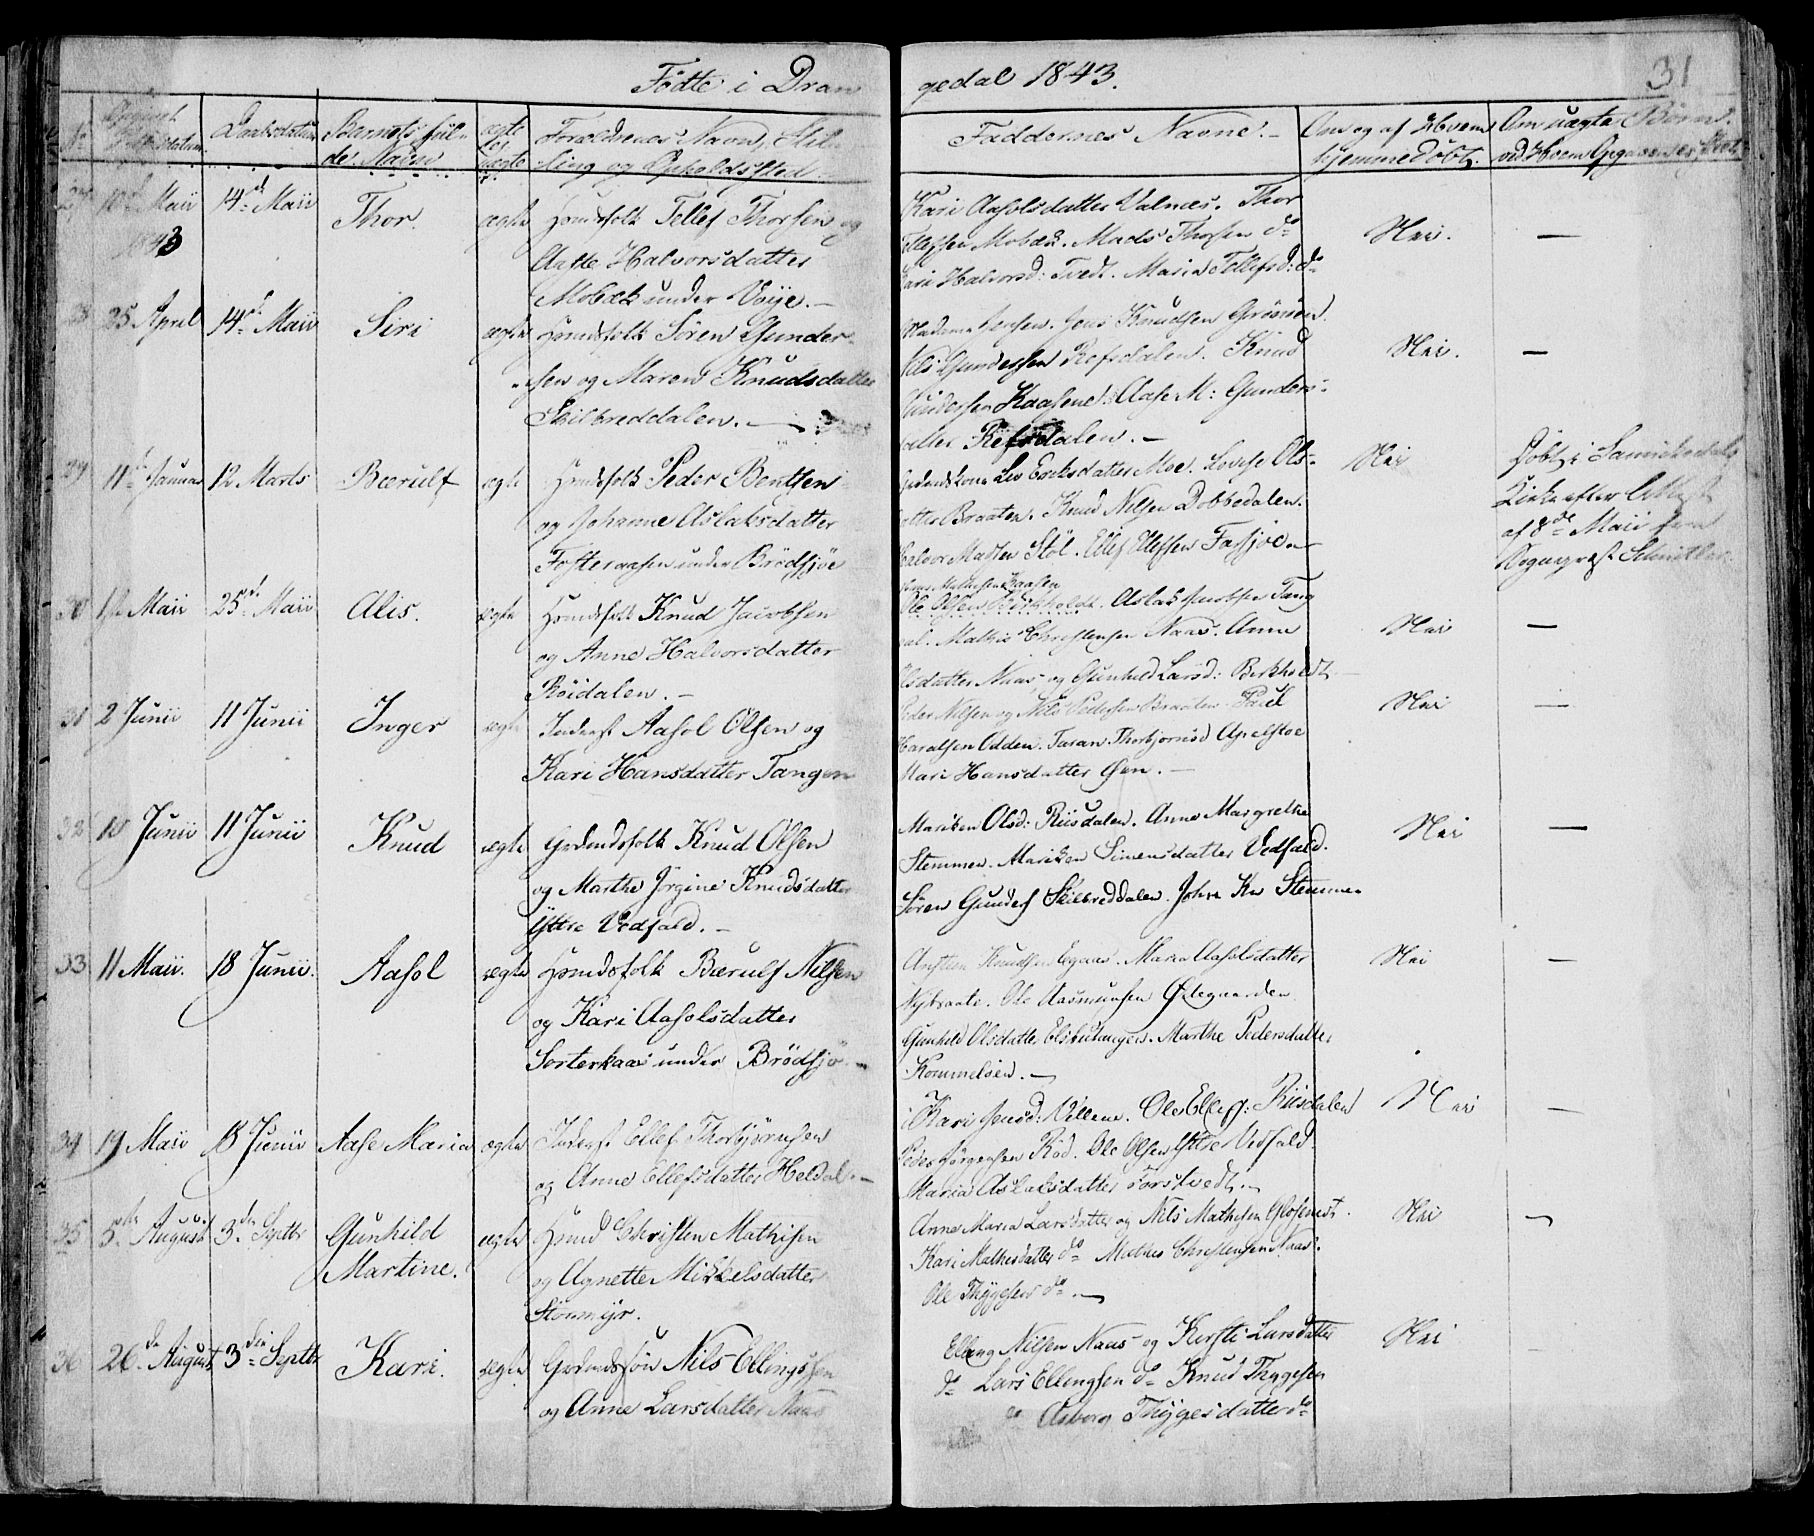 Fødte i Dran
gedal 1843.
31
No
Daabsdatum
Barnets ful-
de Navn
ægte
el.
uægte
Forældrenes Navn, Stil-
ling og Opholdssted
Faddernes Navne.
Om og af Hvem
hjemmedøbt.
Om uægte Børn.
ved Hvem Opgavenes
10de Maii 14de Maii Thor. ægte Huusfolk Tellef Thorsen og
1843
Aaste Halvorsdatter
Molbæk under Voije.
Kari Aasolsdatter Valnæs. Thor
Tellefsen Molbæk. Mads Thorsen do
Kari Halvorsd: Tvedt. Maria Tellefsd: do
Nei. —
28 25 April 14de Maii Siri ægte Huusfolk Søren Gunder-
sen og Maren Knudsdatter
Skilbreddalen.
Madam Jensen. Jens Knudsen
Nils Gundersen Refsdalen. Knud
Gundersen Kaasene. Aase M: Gunders-
datter Refsdalen.
Nei. —
29 11te Januar 12 Marts Bærulf ægte Huusfolk Peder Bentsen
og Johanne Aslaksdatter
Fosteraasen under Brødsjøe
Gaardmkone Liv Eriksdatter Moe. Lovise Ols-
datter Braaten. Knud Nilsen Dobbedalen.
Halvor Madsen Støl. Ellef Olefsen Farsjøe
Nei
Døbt i Sannikedals
Kirke efter Attest
af 8de Maii fra
Sogneprest Schmitler
30 1ste Maii 25de Maii Alis. ægte Huusfolk Knud Jacobsen
og Anne Halvorsdatter
Røidalen.
Mathisen Kaasen
Ole Olsen Birkholdt. Aslak Jacobsen Tang
Mathis Christensen Naas. Anne
Olsdatter Naas og Gunhild Larsd: Birkholdt
Nei —
31 2 Junii 11 Junii Inger ægte Inderst Aasol Olsen og
Kari Hansdatter Tangen
Peder Nilsen og Nils Pedersen Braaten. Poul
Haralsen Odden. Taran Thorbjørnsd Apelstoe
Mari Hansdatter Øen.
Nei —
32 10 Junii 11 Junii Knud ægte Gaardmfolk Knud Olsen
og Marthe Jørgine Knudsdatter
Yttre Vedfald.
Mariken Olsd: Riisdalen. Anne Margrethe
Stemmen. Mariken Simensdatter Vedfald.
Søren Gunders Skilbreddalen. John Kn Stemmen
Nei —
33 11 Maii. 18 Junii. Aasol ægte Huusfolk Bærulf Nilsen
og Kari Aasolsdatter
Sorterkaas under Brødsjø.
Knudsen Egaas. Maria Aasolsdatter
Nybraate. Ole Aasmunsen Ødegaarden
Gunhild Olsdatter Marthe Pedersdatter
Kommelsien.
Nei —
34 19 Maii 18 Junii Aase Maria ægte Inderst Ellef Thorbjørnsen
og Anne Ellefsdatter Heldal.
Kari Jensd: Villene. Ole Ellefs: Riisdalen
Peder Jørgensen Rød. Ole Olsen Yttre Vedfald
Maria Aslaksdatter Forstvedt.
Nei —
35 5te August 3die Septbr Gunhild
Martine.
ægte Huusmd Christen Mathisen
og Agnette Mikkelsdatter
Stormyr.
Anne Maria Larsdatter og Nils Mathisen Glosimodt.
Kari Mathesdatter do Mathis Christensen Naas.
Ole Thygesen do
Nei —
36 26de August 3die Septbr Kari. ægte Gaardmandssøn Nils Ellingsen
og Anne Larsdatter Naas
Elling Nilsen Naas og Kirsti Larsdatter
do Lars Ellingsen do Knud Thygesen
do Asborg Thygesdatter do
Nei